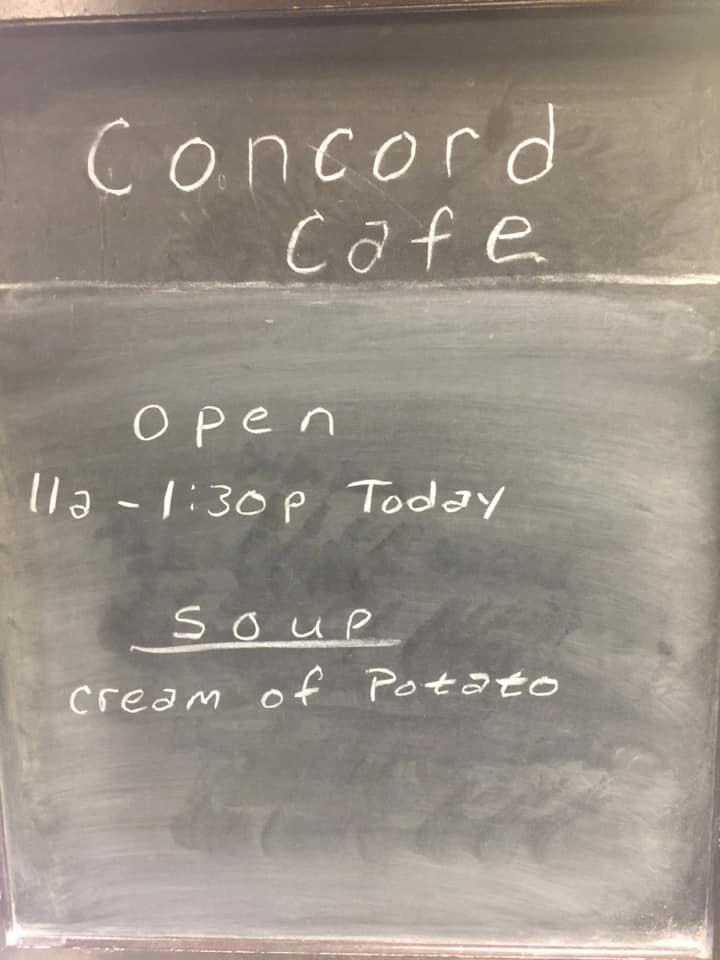 Concord
Cafe
open
11a - 1:30p Today
Soup
cream of Potato